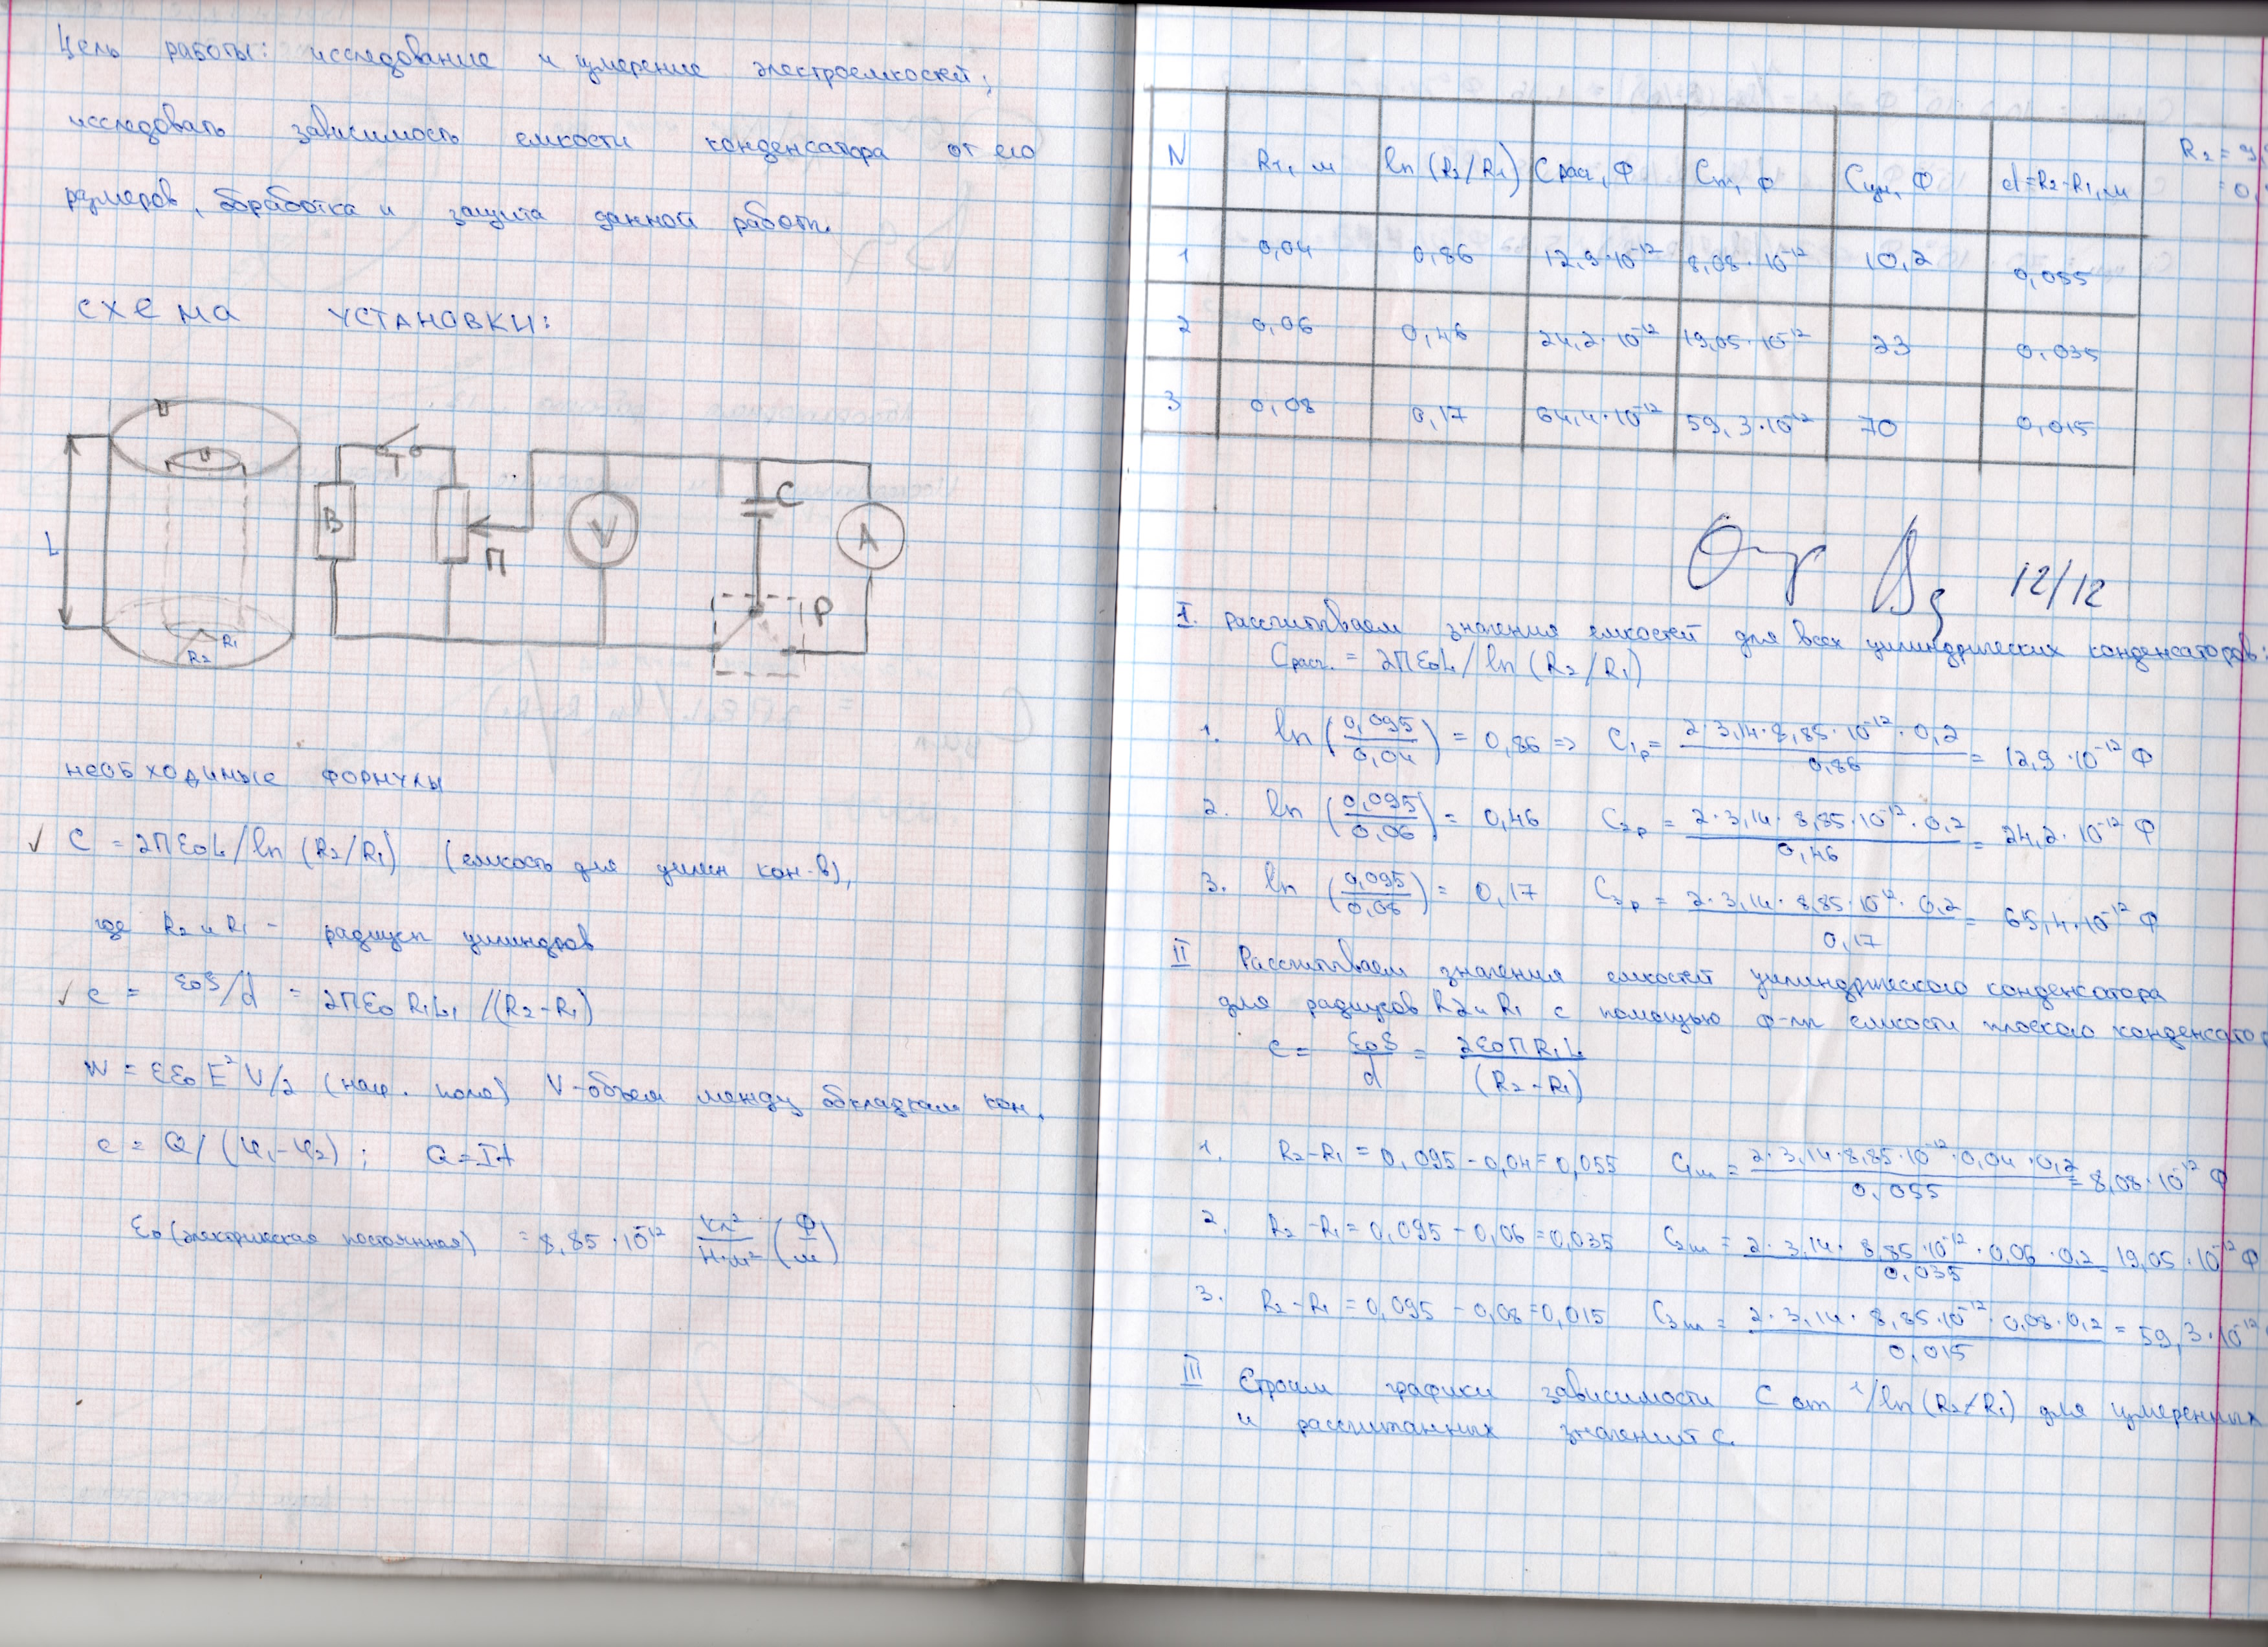 Цель работы: исследование и измерение электроемкостей;
исследовать зависимость емкости конденсатора от его
размеров, обработка и защита данной работы.
схема установки:
L
R1
R2
В
П
V
C
A
Р
необходимые формулы
✓ C = 2ПƐ0L/ln (R2/R1) (емкость для цилин кон-в),
где R2 и R1 - радиусы цилиндров
✓ c = Ɛ0S/d = 2ПƐ0 R1L1 /(R2-R1)
W = ƐƐ0 E² V/2 (нап. поля) V-объем между обкладкам кон.
c = Q/(φ1-φ2) ; Q=It
Ɛ0 (электрическая постоянная) = 8,85 · 10⁻¹² Кл²/Н·м² (Ф/м)
N R1, м ln (R2/R1) Cрасч, Ф Cт, Ф Cизм, Ф d=R2-R1, м
1 0,04 0,86 12,9·10⁻¹² 8,08·10⁻¹² 10,2 0,055
2 0,06 0,46 24,2·10⁻¹² 19,05·10⁻¹² 23 0,035
3 0,08 0,17 64,4·10⁻¹² 59,3·10⁻¹² 70 0,015
R2 = 9,
= 0,
12/12
I. рассчитываем значения емкостей для всех цилиндрических конденсаторов:
Cрасч. = 2ПƐ0L/ln (R2/R1)
1. ln (0,095/0,04) = 0,86 => C1р = 2·3,14·8,85·10⁻¹²·0,2/0,86 = 12,9·10⁻¹² Ф
2. ln (0,095/0,06) = 0,46 C2р = 2·3,14·8,85·10⁻¹²·0,2/0,46 = 24,2·10⁻¹² Ф
3. ln (0,095/0,08) = 0,17 C3р = 2·3,14·8,85·10⁻¹²·0,2/0,17 = 65,4·10⁻¹² Ф
II Рассчитываем значения емкостей цилиндрического конденсатора
для радиусов R2 и R1 с помощью ф-лы емкости плоского конденсатор
c = Ɛ0S/d = 2Ɛ0ПR1L/(R2-R1)
1. R2-R1 = 0,095-0,04=0,055 C1т = 2·3,14·8,85·10⁻¹²·0,04·0,2/0,055 = 8,08·10⁻¹² Ф
2. R2-R1 = 0,095-0,06=0,035 C2т = 2·3,14·8,85·10⁻¹²·0,06·0,2/0,035 = 19,05·10⁻¹² Ф
3. R2-R1 = 0,095-0,08=0,015 C3т = 2·3,14·8,85·10⁻¹²·0,08·0,2/0,015 = 59,3·10⁻¹²
III Строим графики зависимости C от 1/ln (R2/R1) для измеренных
и рассчитанных значений c.